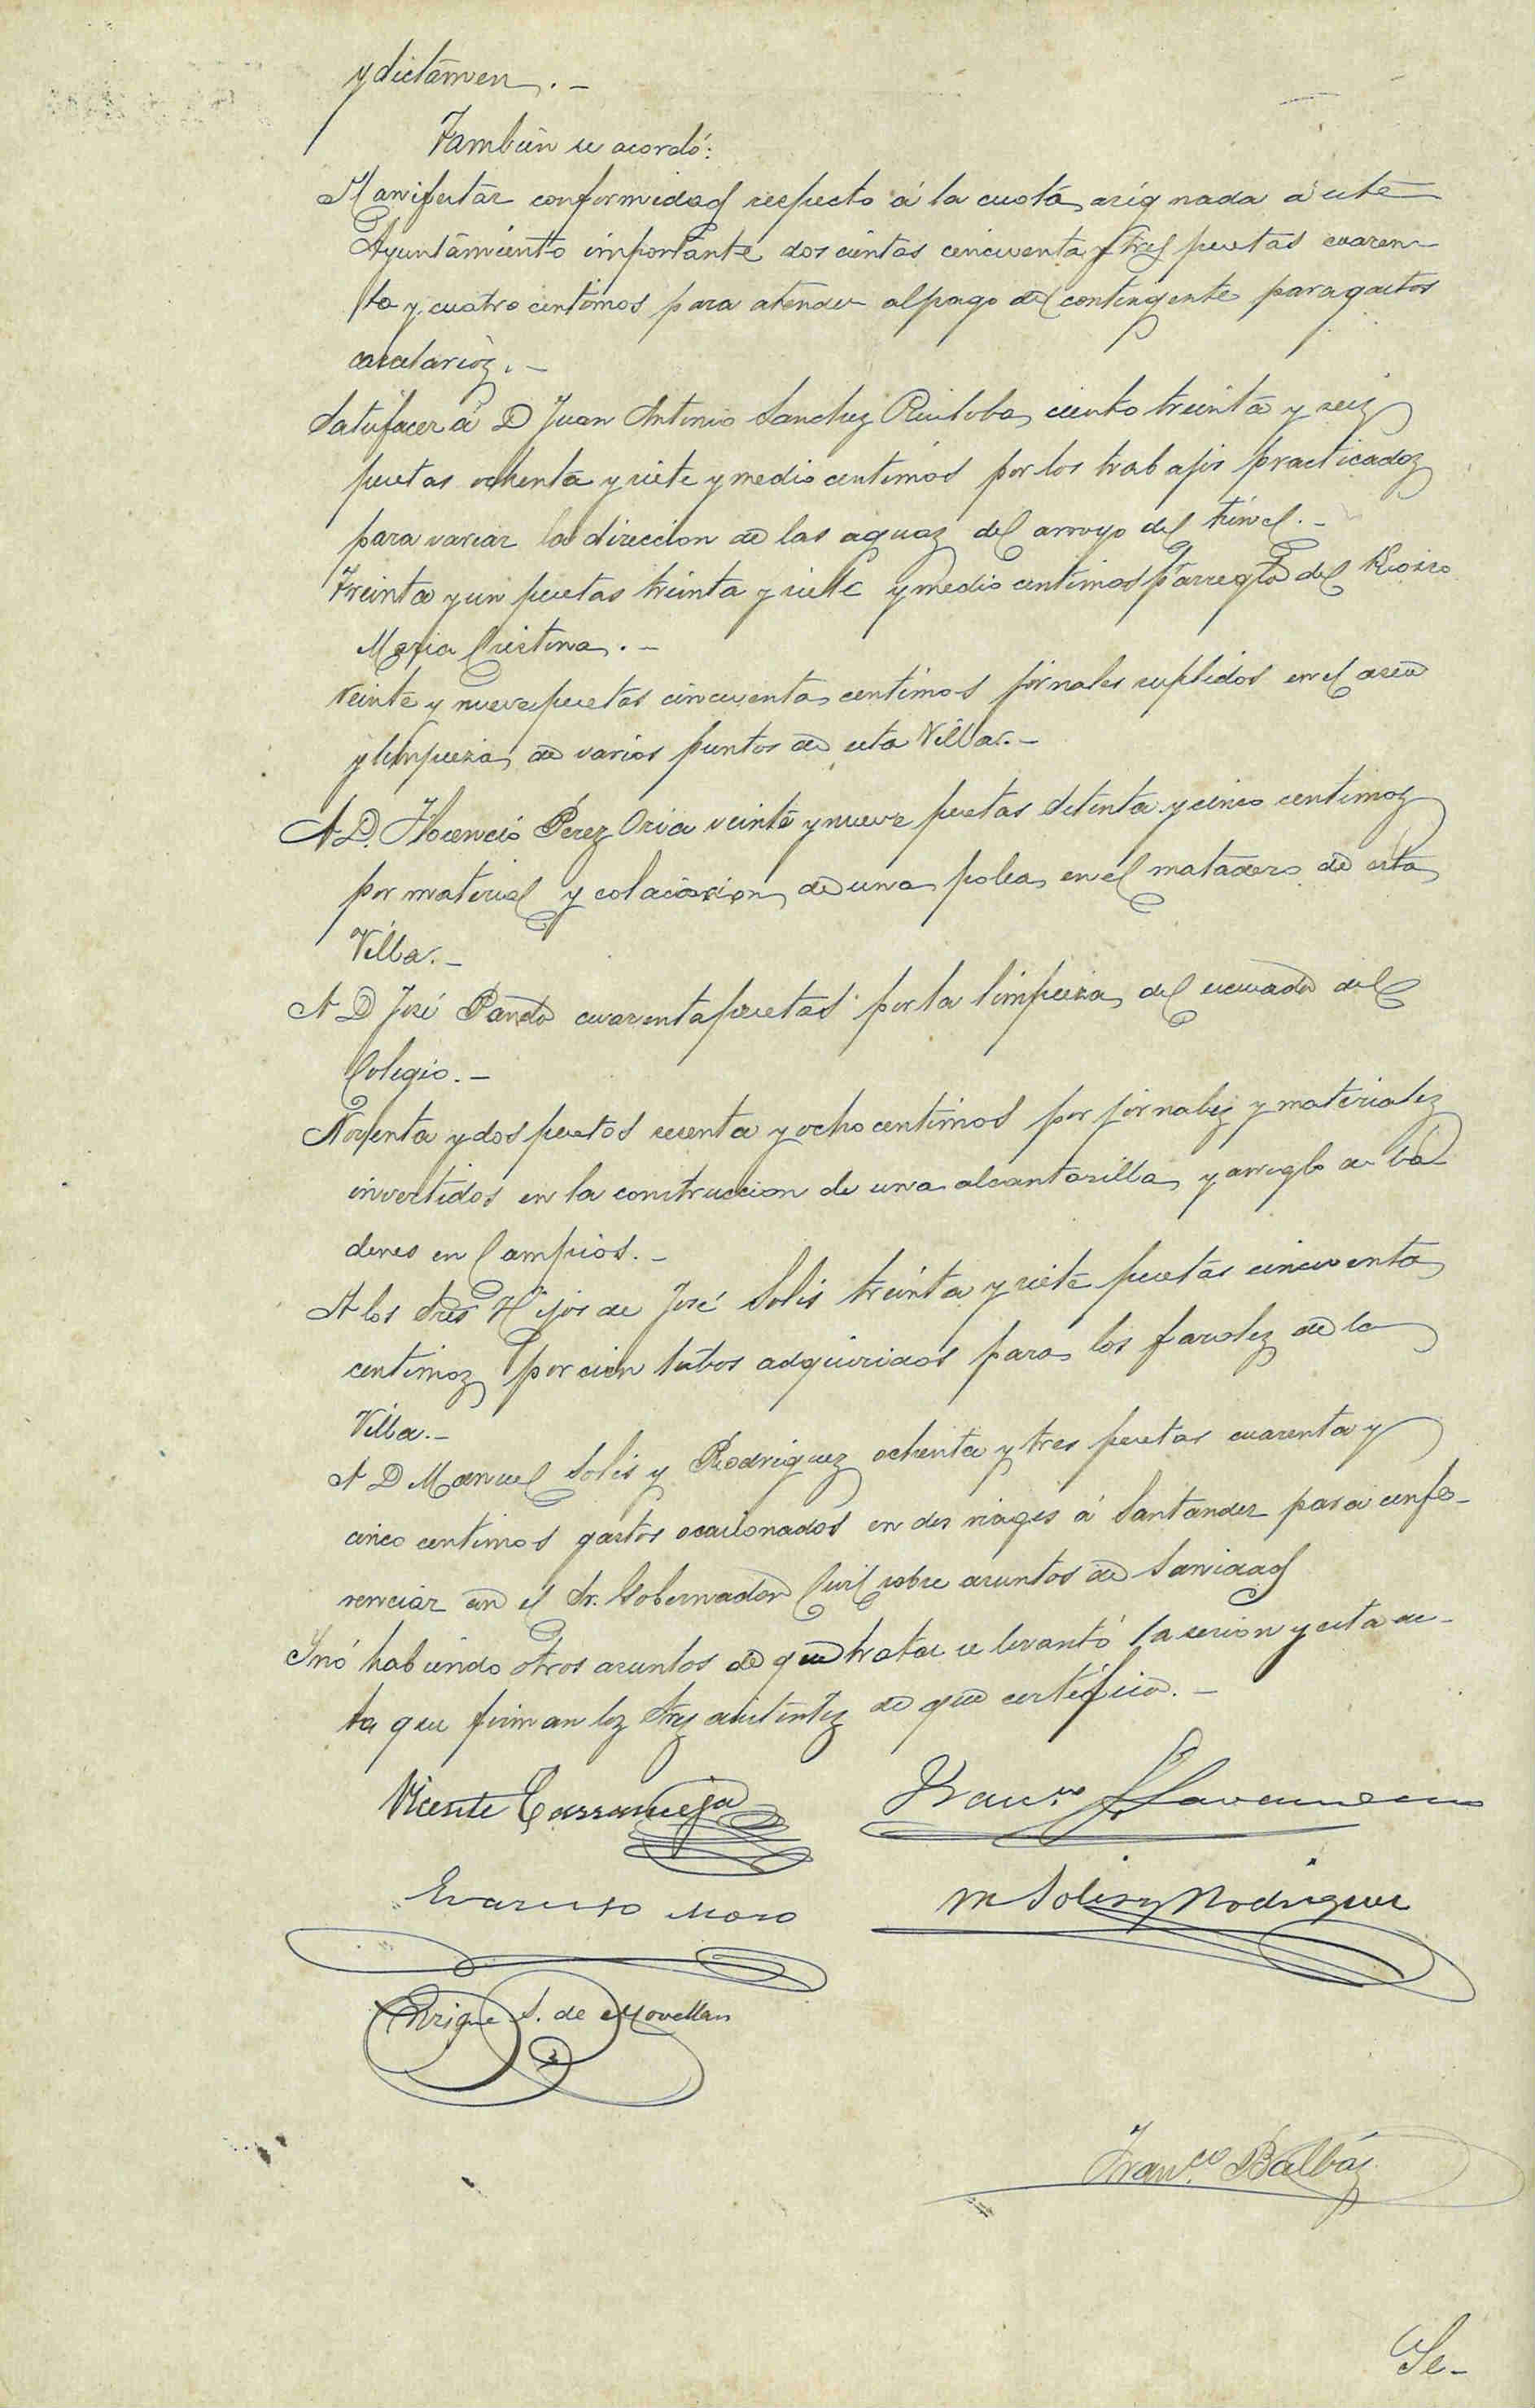 y dictámen. -
Tambien se acordó:
Manifestar conformidad respecto á la cuota asignada á este
Ayuntamiento importante doscientas cincuenta y tres pesetas cuaren-
ta y cuatro centimos para atender al pago del contingente para gastos
carcelarios. -
Satisfacer á D Juan Antonio Sanchez Ruiloba, ciento treinta y seis
pesetas ochenta y siete y medio centimos por los trabajos practicados
para variar la direccion de las aguas del arroyo del túnel. -
Treinta y un pesetas treinta y siete y medio centimos pr arreglo del Kiosco
Maria Cristina. -
Veinte y nueve pesetas cincuenta centimos jornales suplidos en el aseo
y limpieza de varios puntos de esta Villa. -
A D. Florencio Perez Oria veinte y nueve pesetas setenta y cinco centimos
por material y colocacion de una polea en el matadero de esta
Villa. -
A D José Pando cuarenta pesetas por la limpieza del escusado del
Colegio. -
Noventa y dos pesetas sesenta y ocho centimos por jornales y materiales
invertidos en la construccion de una alcantarilla y arreglo de ba
denes en Campios. -
A los Sres Hijos de José Solis treinta y siete pesetas cincuenta
centimos por cien tubos adquiridos para los faroles de la
Villa. -
A D Manuel Solis y Rodriguez ochenta y tres pesetas cuarenta y
cinco centimos gastos ocasionados en dos viages á Santander para confe-
renciar con el Sr. Gobernador Civil sobre asuntos de Sanidad
Y nó habiendo otros asuntos de que tratar se levantó la sesion y esta ac-
ta que firman los Sres asistentes de que certifico. -
Vicente Carranceja
Evaristo Moro
M Solis y Rodriguez
Enrique S. de Movellan
Franco. Balbás
Se-